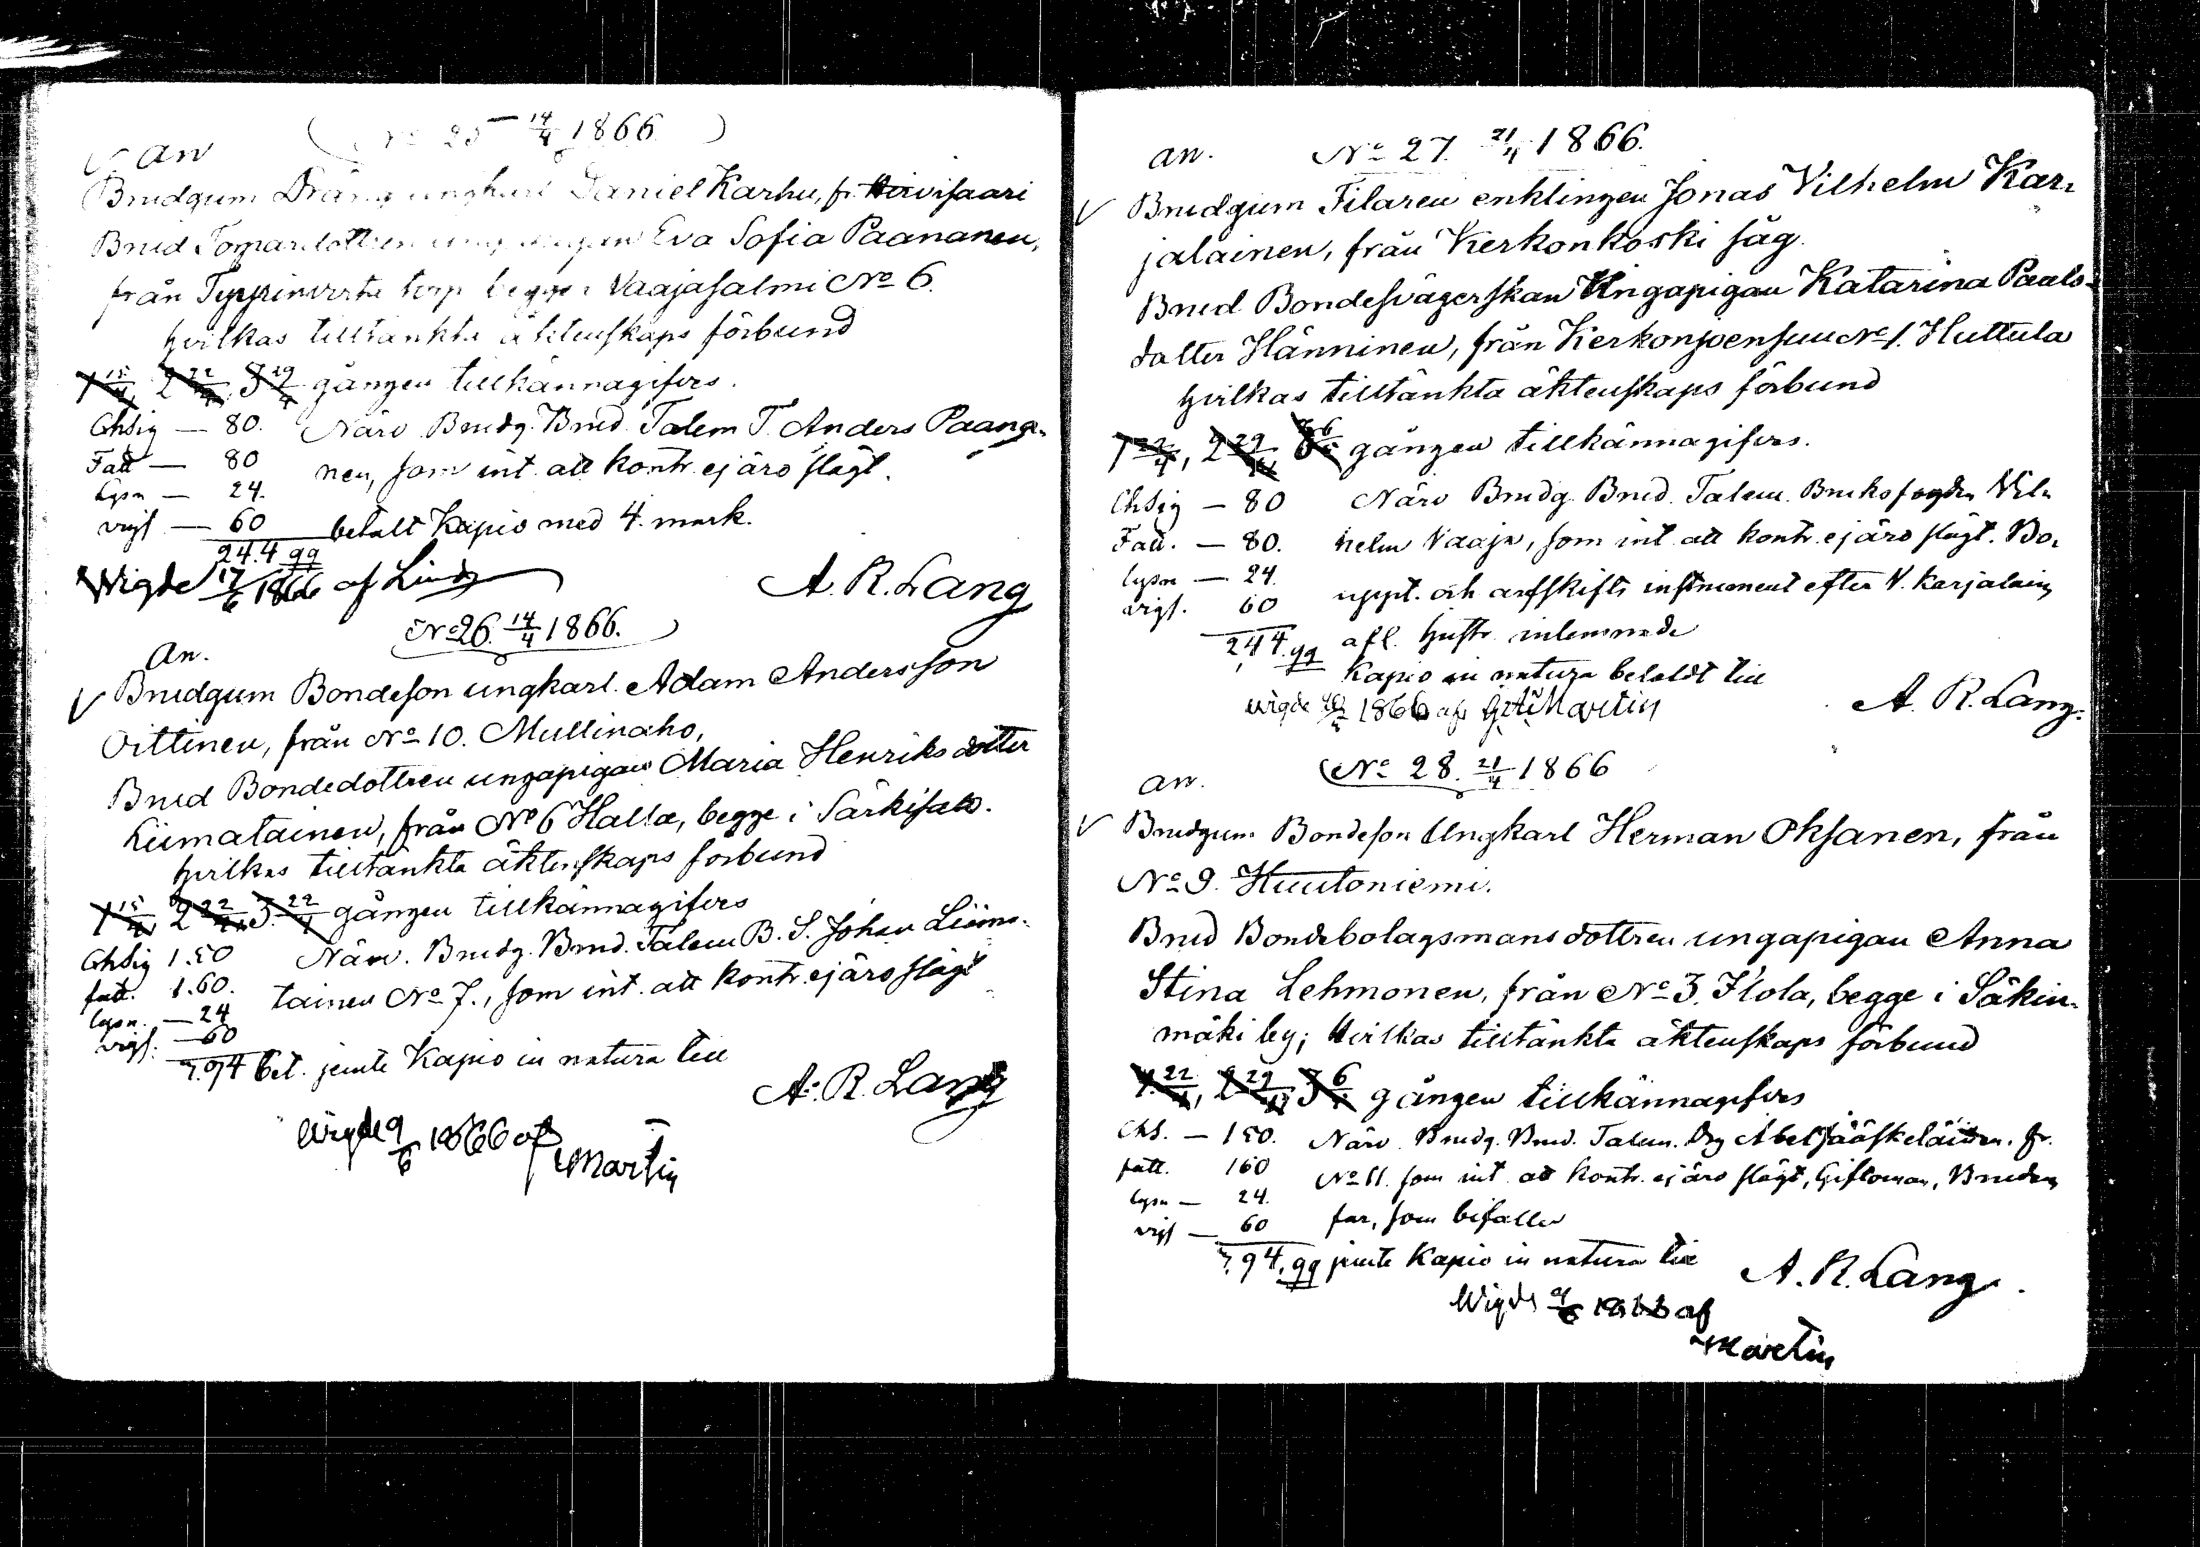 No 25 14/4 1866
an
Brudgum Dräng ungkarl Daniel Karhu, fr. Hirvisaari
Brud Torpardottren Eva Sofia Paananen,
från torp begge i Vaajasalmi No 6.
hvilkas tilltänkta äktenskaps förbund
1 15/4, 2 22/4, 3 29/4 gången tillkännagifves.
Chsig — 80. Närv Brudg. Brud. Talem T. Anders Paana-
Fatt — 80 nen, som int. att kontr. ej äro slägt.
lysn — 24.
vigs — 60 betalt Kapio med 4. mark.
24.4 gg
Wigde 17/6 1866 af Lind
A. R. Lang
No 26. 14/4 1866.
an.
Brudgum Bondeson ungkarl. Adam Andersson
Oittinen, från No 10. Mullinaho,
Brud Bondedottren ungapigan Maria Henriksdotter
Liimatainen, från No 6 Halla, begge i Särkisalo.
hvilkas tilltänkta äktenskaps forbund
1 15/4 2 22/4 3. 22/4 gången tillkännagifves
Chsig 1.50 Närv. Brudg. Brud. Talem B. S. Johan Liima-
fatt. 1.60. tainen No 7., som int. att kontr. ej äro slägt
lysn. — 24
vigs. — 60
3.94 bet. jemte Kapio in natura till
A. R. Lang
Wigde 9/6 1866 af
Martin
an. No 27. 21/4 1866.
Brudgum Filaren enklingen Jonas Vilhelm Kar-
jalainen, från Kerkonkoski såg.
Brud Bondesvägerskan Ungapigan Katarina Paals-
dotter Hänninen, från Kerkonjoensuu No 1. Huttula
hvilkas tilltänkta äktenskaps förbund
1 22/4, 2 29/4 3 6/5 gången tillkännagifves.
Chsig — 80 Närv Brudg. Brud. Talem. Bruksfogden Vil-
Fatt. — 80. helm Vaaja, som int. att kontr. ej äro slägt. Bo-
lysn — 24. uppt. och arfskifts instrument efter V. Karjalain
vigs. 60 afl. hustr. inlemnade
2,44. gg Kapio in natura betaldt till
wigde 1866 af Martin
A. R. Lang.
an. No 28. 21/4 1866
Brudgum Bondeson Ungkarl Herman Oksanen, från
No 9. Huutoniemi.
Brud Bondebolagsmansdottren ungapigan Anna
Stina Lehmonen, från No 3. Ilola, begge i Säkin-
mäki by; hvilkas tilltänkta äktenskaps förbund
1. 22/4, 2 29/4 3 6/5 gången tillkännagifves
Chs. — 150. Närv. Brudg. Brud. Talem. Drg Abel Jääskeläinen. fr.
fatt. 160 No 11. som int. att kontr. ej äro slägt, Giftoman, Brudens
lysn — 24. far, som bifaller
vigs — 60
3.94. gg jemte Kapio in natura till
A. R. Lang.
Wigde 9/6 1866 af
Martin